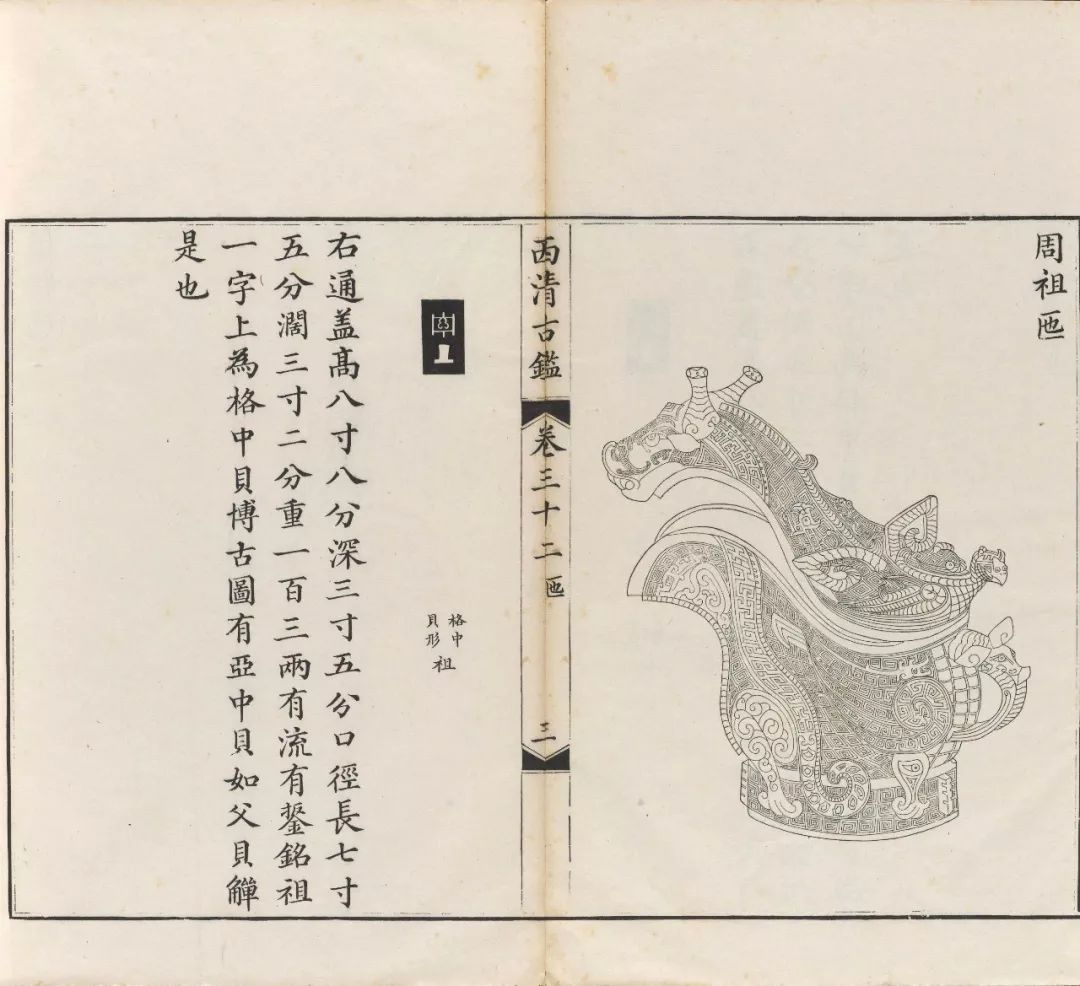 周祖匜
西清古鑑
卷三十二 匜
三
格中
貝形
祖
右通盖高八寸八分深三寸五分口徑長七寸
五分濶三寸二分重一百三兩有流有鋬銘祖
一字上為格中貝博古圖有亞中貝如父貝觶
是也